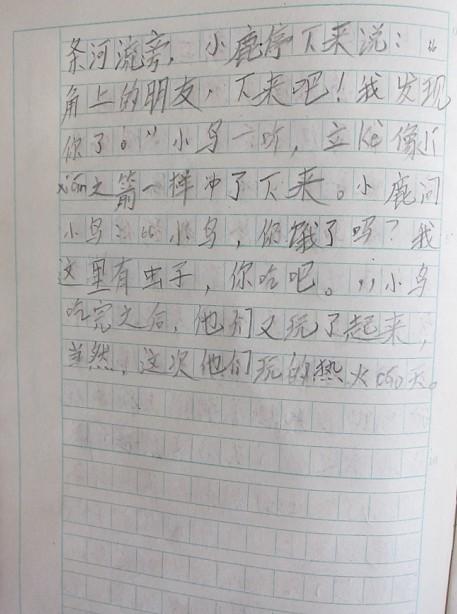 条河流旁，小鹿停下来说：“
角上的朋友，下来吧！我发现
你了。”小鸟一听，立kè像小
xiàn之箭一样冲了下来。小鹿问
小鸟：“小鸟，你饿了吗？我
这里有虫子，你吃吧。”小鸟
吃完之后，他们又玩了起来，
当然，这次他们玩的热火cáo天。